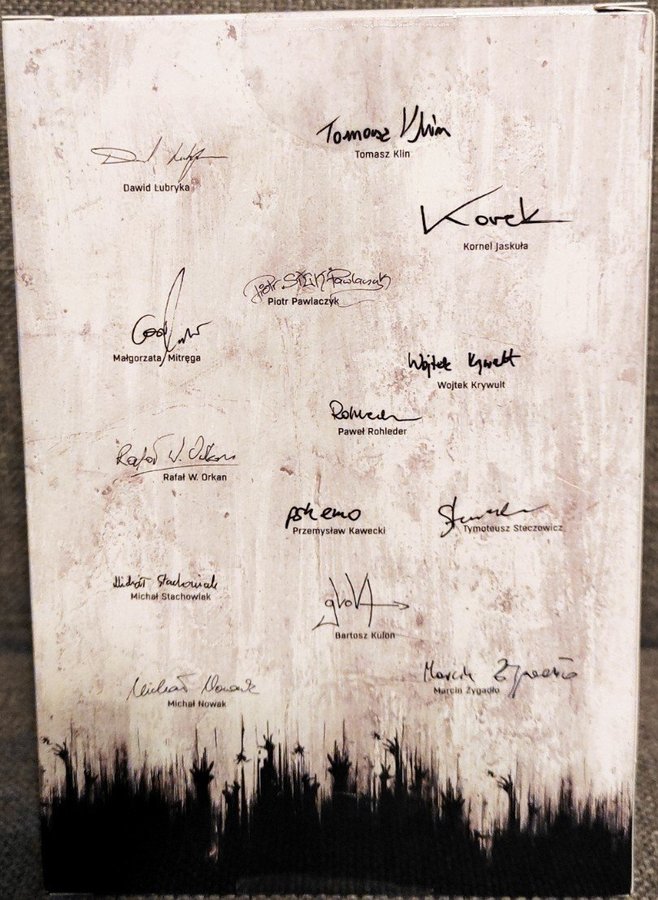 Tomasz Klin
Tomasz Klin
Dawid Łubryka
Korek
Kornel Jaskuła
Piotr Pawlaczyk
Małgorzata Mitręga
Wojtek Krywult
Wojtek Krywult
Rohleder
Paweł Rohleder
Rafał W. Orkan
Rafał W. Orkan
Przemysław Kawecki
Tymoteusz Steczowicz
Michał Stachowiak
Michał Stachowiak
Bartosz Kulon
Marcin Żygadło
Marcin Żygadło
Michał Nowak
Michał Nowak